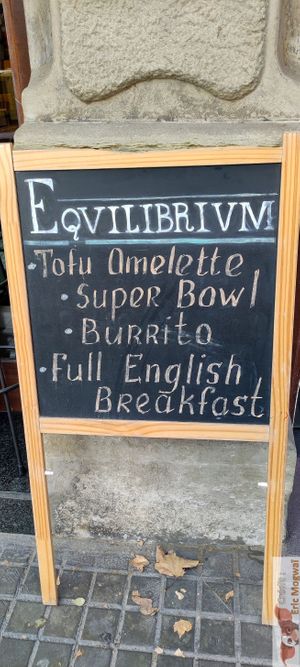 EQVILIBRIVM
·Tofu Omelette
·Super Bowl
·Burrito
·Full English
Breakfast
Eric Mogwai